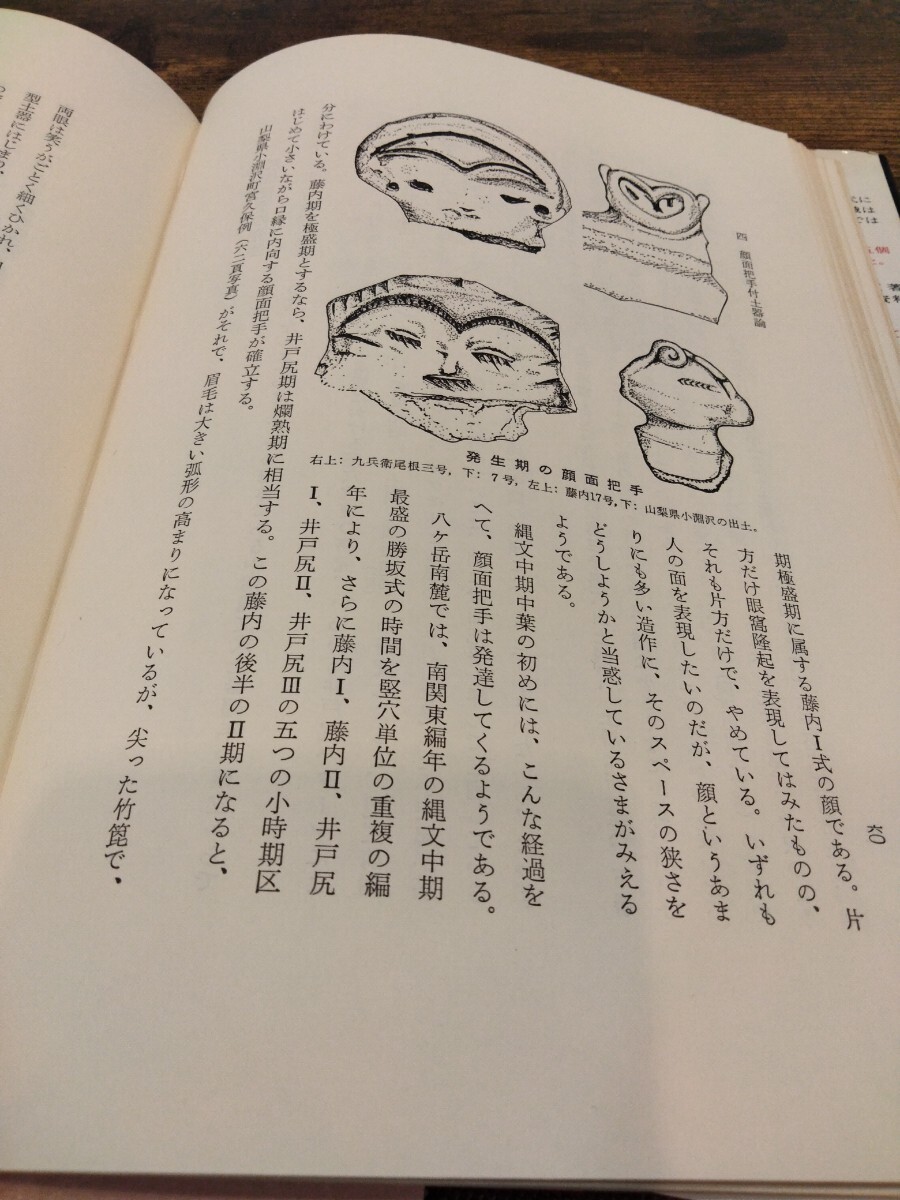 四　顔面把手付土器論
六〇
発生期の顔面把手
右上：九兵衛尾根三号，下：7号，左上：藤内17号，下：山梨県小淵沢の出土。
期極盛期に属する藤内Ⅰ式の顔である。片
方だけ眼窩隆起を表現してはみたものの、
それも片方だけで、やめている。いずれも
人の面を表現したいのだが、顔というあま
りにも多い造作に、そのスペースの狭さを
どうしようかと当惑しているさまがみえる
ようである。
縄文中期中葉の初めには、こんな経過を
へて、顔面把手は発達してくるようである。
八ヶ岳南麓では、南関東編年の縄文中期
最盛の勝坂式の時間を竪穴単位の重複の編
年により、さらに藤内Ⅰ、藤内Ⅱ、井戸尻
Ⅰ、井戸尻Ⅱ、井戸尻Ⅲの五つの小時期区
分にわけている。藤内期を極盛期とするなら、井戸尻期は爛熟期に相当する。この藤内の後半のⅡ期になると、
はじめて小さいながら口縁に内向する顔面把手が確立する。
山梨県小淵沢町宮久保例（六二頁写真）がそれで、眉毛は大きい弧形の高まりになっているが、尖った竹箆で、
両眼は笑うがごとく細くひかれ、
型土器にはじまり、